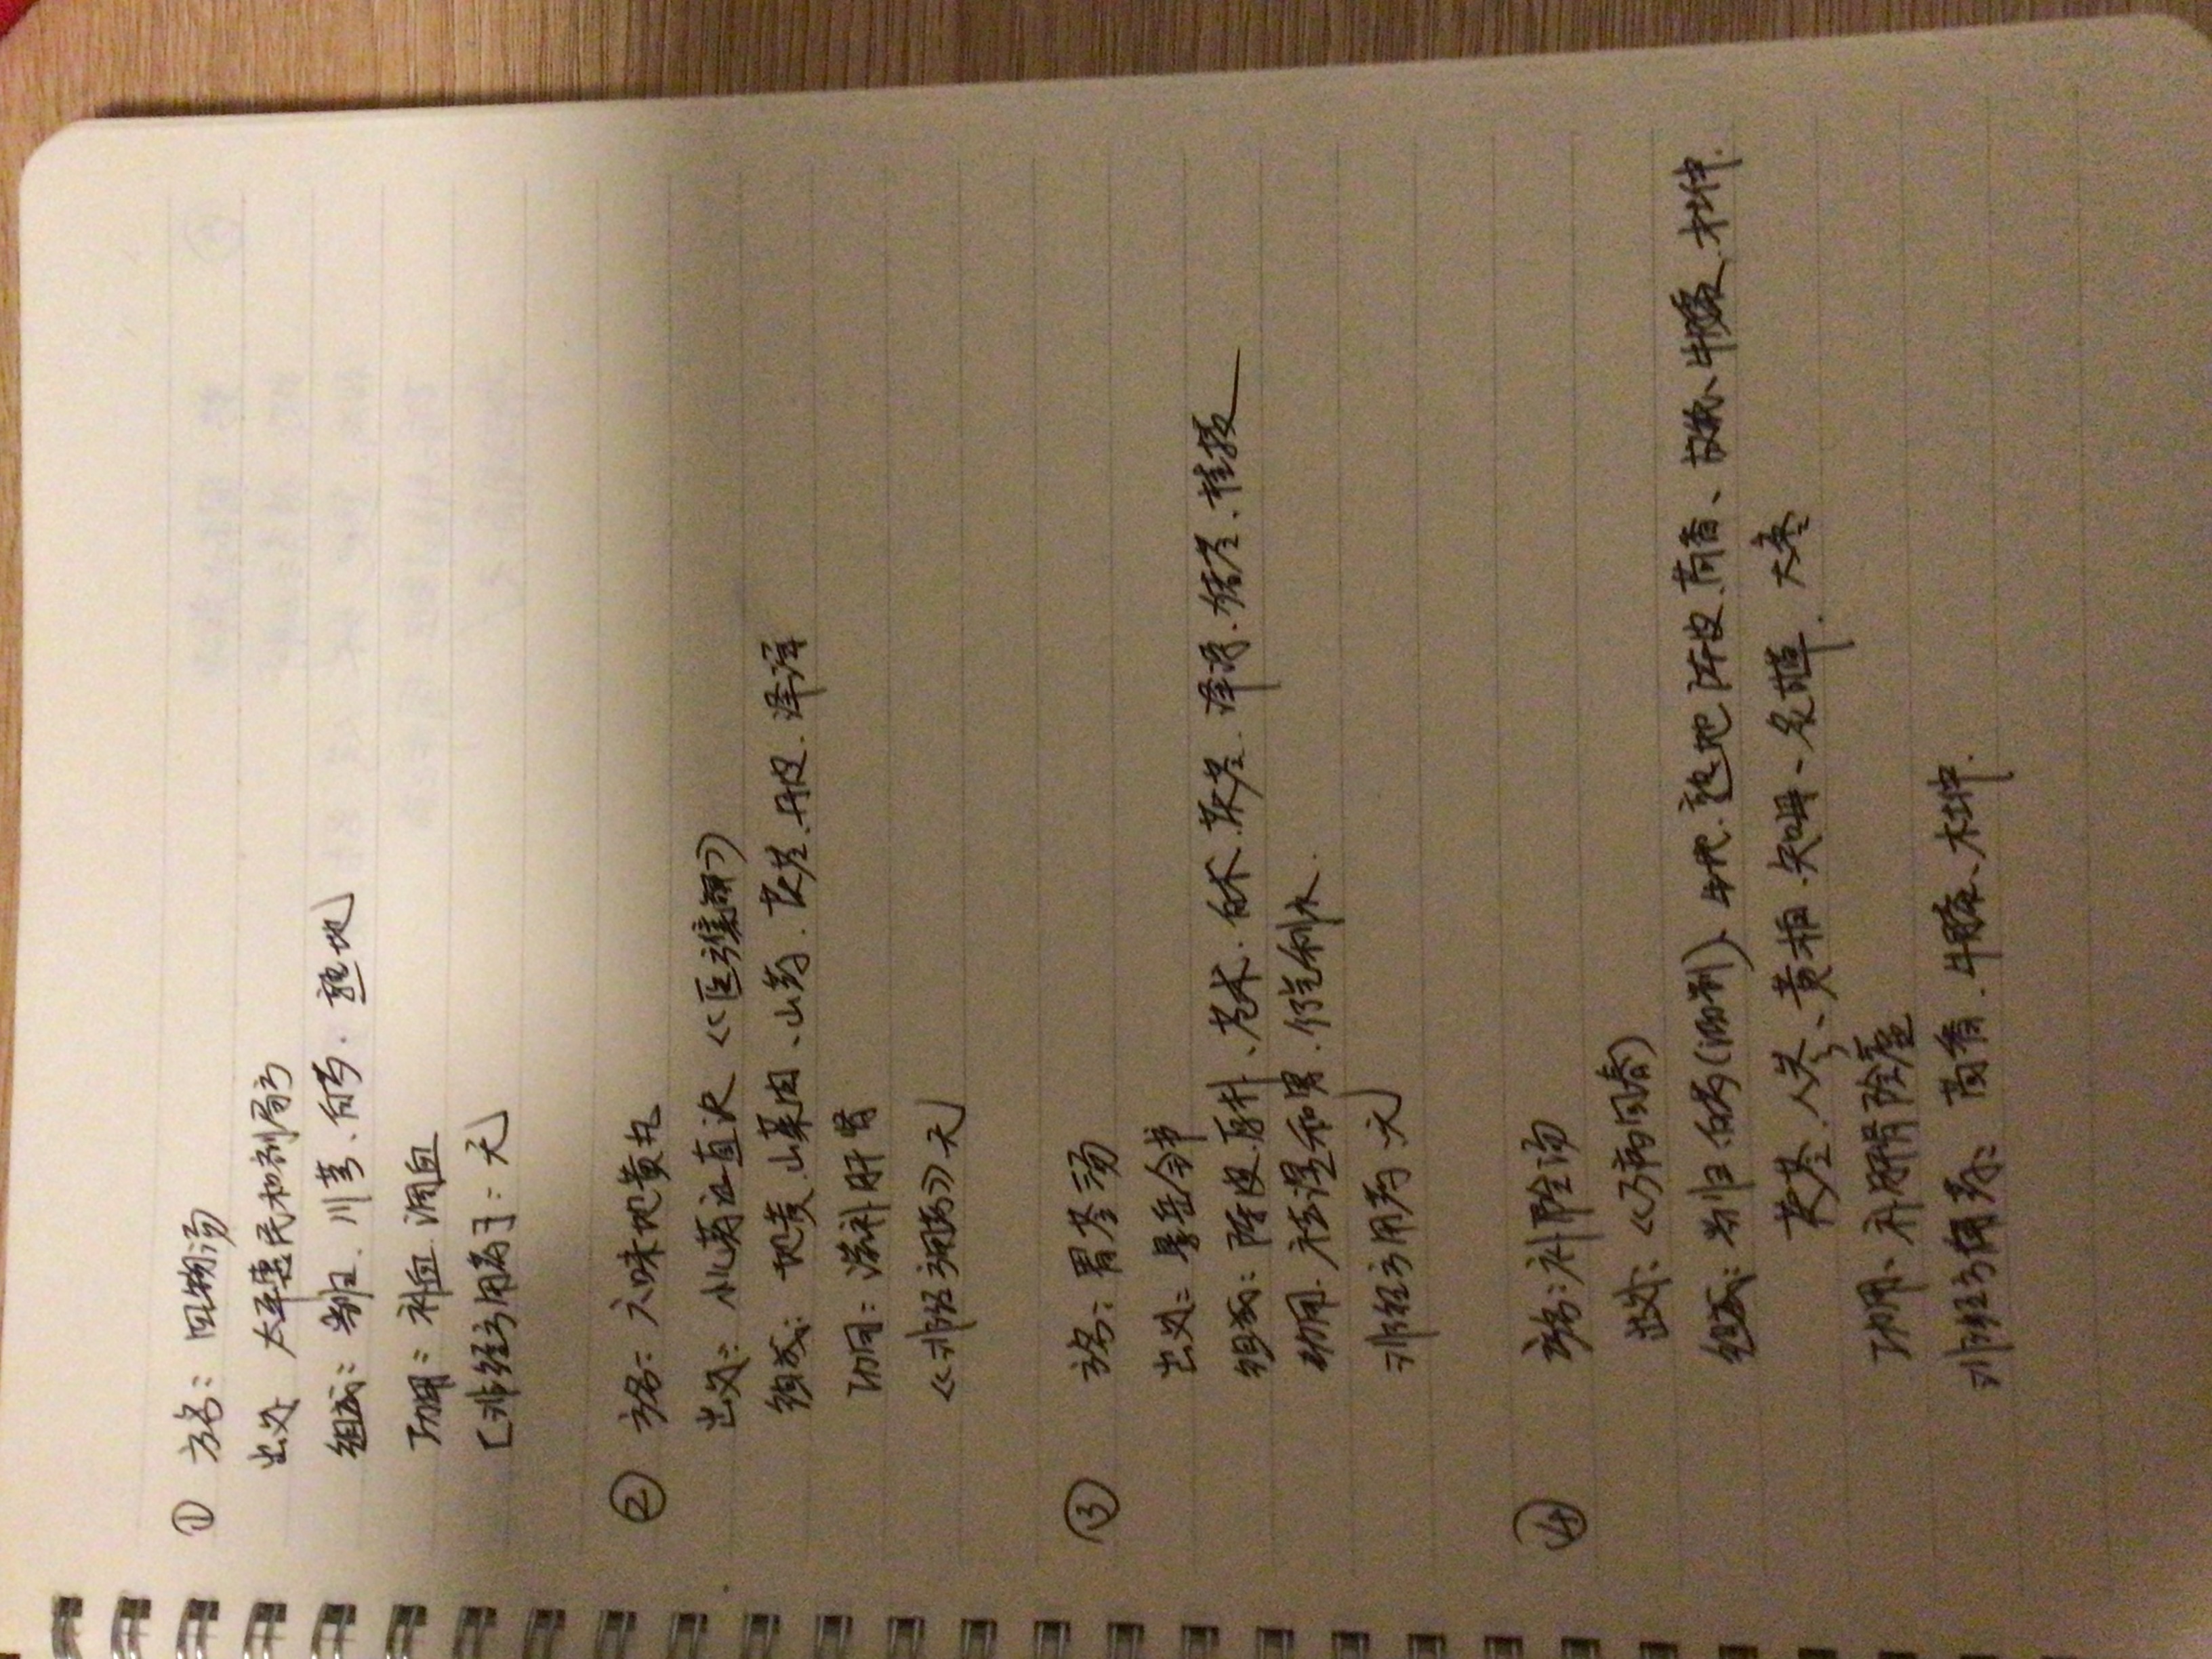 ① 方名：四物汤
出处 太平惠民和剂局方
组成：当归、川芎、白芍、熟地
功用：补血 调血
[非经方用药]：无
② 方名：六味地黄丸
出处：小儿药证直决《医
组成：地黄、山萸肉、山药、茯苓、丹皮、泽泻
功用：滋补肝肾
《非经方用药》无
③ 方名：胃苓汤
出处：景岳全书
组成：陈皮、厚朴、苍术、白术、茯苓、泽泻、猪苓、桂枝
功用：祛湿和胃、行气利水
非经方用药：无
④ 方名：补阴汤
出处：《万病回春》
组成：当归、白芍(酒制)、生地、熟地、陈皮、茴香、故纸、牛膝、杜仲
茯苓、人参、黄柏、知母、炙甘草、大枣
功用：补肝肾阴虚
非经方用药：茴香、牛膝、杜仲